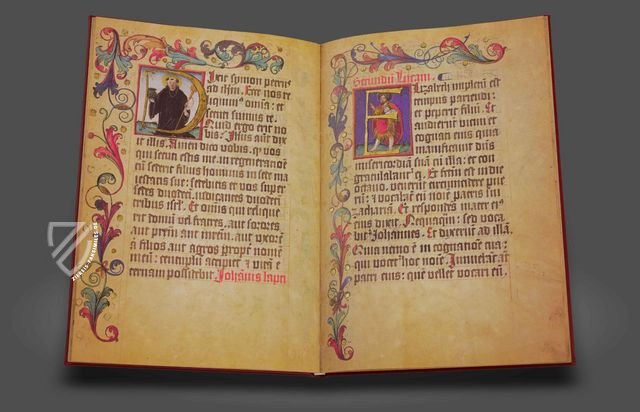 Dixit symon petrus
ad ihm. Ecce nos re
liquim⁹ omia: et
secuti sumus te.
Quid ergo erit no
bis: Ihsus aut dix
it illis. Amen dico vobis. q vos
qui secuti estis me. in regeneratione
cum sederit filius hominis in sede ma
iestatis sue: sedebitis et vos super
sedes duodecim. iudicantes duodecim
tribus isrl. Et omis qui relique
rit domum vel fratres. aut sorores
aut prem aut mrem. aut uxorem
a filios aut agros propter nome
meu: centuplu accipiet. et vita e
ternam possidebit. Johanis bapti
Secundum Lucam.
Elizabeth impletu est
tempus pariendi:
et peperit filiu. Et
audierut vicini et
cognati eius quia
magnificavit dns
misericordia sua cu illa: et con
gratulabat ei. Et factu est in die
octavo. venerut circumcidere pue
rum: et vocabat eu noie patris sui
zacharia. Et respondens mater ei⁹
dixit. Nequaqum: sed voca
bit Johannes. Et dixerut ad illa.
Quia nemo e in cognatione tua:
qui vocet hoc noie. Innuebat aut
patri eius: que vellet vocari eu.
ZIEREIS FAKSIMILES.DE